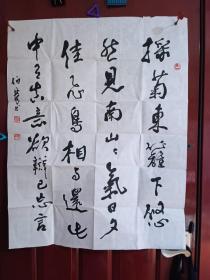 採菊東籬下悠
然見南山〻氣日夕
佳飛鳥相与還此
中有真意欲辯已忘言